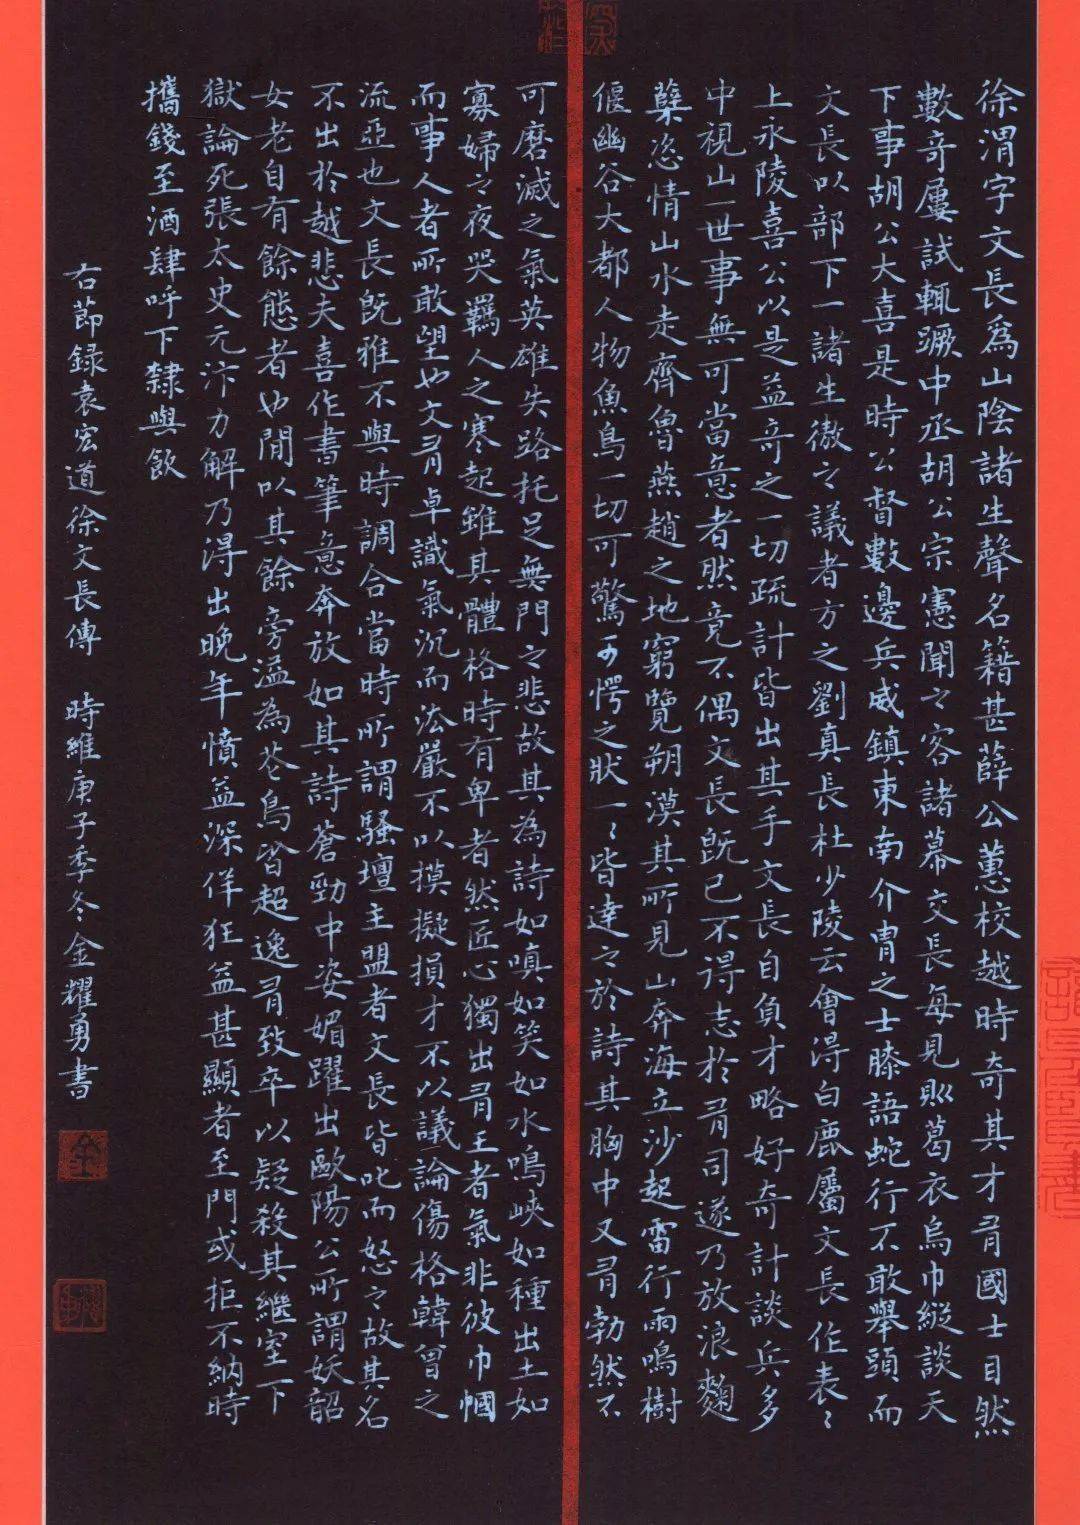 徐渭字文長爲山陰諸生聲名籍甚薛公蕙校越時奇其才有國士目然
數奇屢試輒蹶中丞胡公宗憲聞之客諸幕文長每見則葛衣烏巾縱談天
下事胡公大喜是時公督數邊兵威鎮東南介胄之士膝語蛇行不敢舉頭而
文長以部下一諸生傲之議者方之劉真長杜少陵云會得白鹿屬文長作表〻
上永陵喜公以是益奇之一切疏計皆出其手文長自負才略好奇計談兵多
中視山一世事無可當意者然竟不偶文長既已不得志於有司遂乃放浪麴
蘖恣情山水走齊魯燕趙之地窮覽朔漠其所見山奔海立沙起雷行雨鳴樹
偃幽谷大都人物魚鳥一切可驚可愕之狀一〻皆達之於詩其胸中又有勃然不
可磨滅之氣英雄失路托足無門之悲故其為詩如嗔如笑如水鳴峽如種出土如
寡婦之夜哭羈人之寒起雖其體格時有卑者然匠心獨出有王者氣非彼巾幗
而事人者所敢望也文有卓識氣沉而法嚴不以摸擬損才不以議論傷格韓曾之
流亞也文長既雅不與時調合當時所謂騷壇主盟者文長皆叱而怒之故其名
不出於越悲夫喜作書筆意奔放如其詩蒼勁中姿媚躍出歐陽公所謂妖韶
女老自有餘態者也閒以其餘旁溢為花鳥皆超逸有致卒以疑殺其繼室下
獄論死張太史元汴力解乃得出晚年憤益深佯狂益甚顯者至門或拒不納時
攜錢至酒肆呼下隸與飲
右節録袁宏道徐文長傳 時維庚子季冬金耀勇書